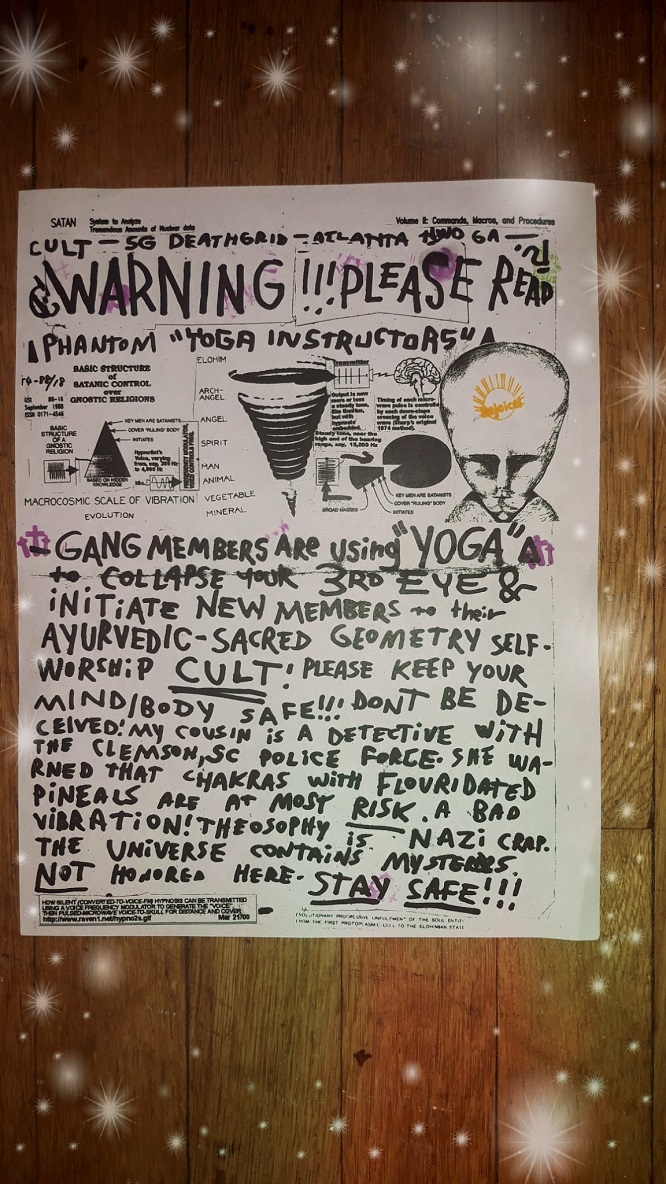 SATAN System to Analyze Tremendous Amounts of Nuclear data
Volume II: Commands, Macros, and Procedures
CULT - 5G DEATHGRID - ATLANTA GA
WARNING !!! PLEASE READ
PHANTOM "YOGA INSTRUCTORS"
BASIC STRUCTURE
of
SATANIC CONTROL
over
GNOSTIC RELIGIONS
GSI 88-16
September 1988
ISSN 0171-4546
BASIC
STRUCTURE
OF A
GNOSTIC
RELIGION
KEY MEN ARE SATANISTS
COVER "RULING" BODY
INITIATES
BASED ON HIDDEN
KNOWLEDGE
Hypnotist's
Voice, varying
from, say, 300 Hz
to 4,000 Hz
MACROCOSMIC SCALE OF VIBRATION
EVOLUTION
ELOHIM
ARCH-
ANGEL
ANGEL
SPIRIT
MAN
ANIMAL
VEGETABLE
MINERAL
Transmitter
Output is now
more or less
a steady tone,
like tinnitus,
but with
hypnosis
embedded.
Steady tone, near the
high end of the hearing
range, say, 15,000 Hz
Timing of each micro-
wave pulse is controlled
by each down-slope
crossing of the voice
wave (Sharp's original
1974 method).
BROAD MASSES
KEY MEN ARE SATANISTS
COVER "RULING" BODY
INITIATES
Rejoice
- GANG MEMBERS ARE USING "YOGA"
to COLLAPSE YOUR 3RD EYE &
INITIATE NEW MEMBERS to their
AYURVEDIC-SACRED GEOMETRY SELF-
WORSHIP CULT! PLEASE KEEP YOUR
MIND/BODY SAFE!!! DONT BE DE-
CEIVED! MY COUSIN IS A DETECTIVE WITH
THE CLEMSON, SC POLICE FORCE. SHE WA-
RNED THAT CHAKRAS WITH FLOURIDATED
PINEALS ARE AT MOST RISK. A BAD
VIBRATION! THEOSOPHY IS NAZI CRAP.
THE UNIVERSE CONTAINS MYSTERIES.
NOT HONORED HERE. STAY SAFE!!!
HOW SILENT (CONVERTED-TO-VOICE-FM) HYPNOSIS CAN BE TRANSMITTED
USING A VOICE FREQUENCY MODULATOR TO GENERATE THE "VOICE",
THEN PULSED-MICROWAVE VOICE-TO-SKULL FOR DISTANCE AND COVER
http://www.raven1.net/hypno2s.gif Mar 21/00
EVOLUTIONARY PROGRESSIVE UNFOLDMENT OF THE SOUL ENTIT-
FROM THE FIRST PROTOPLASMIC CELL TO THE ELOHIMIAN STATE